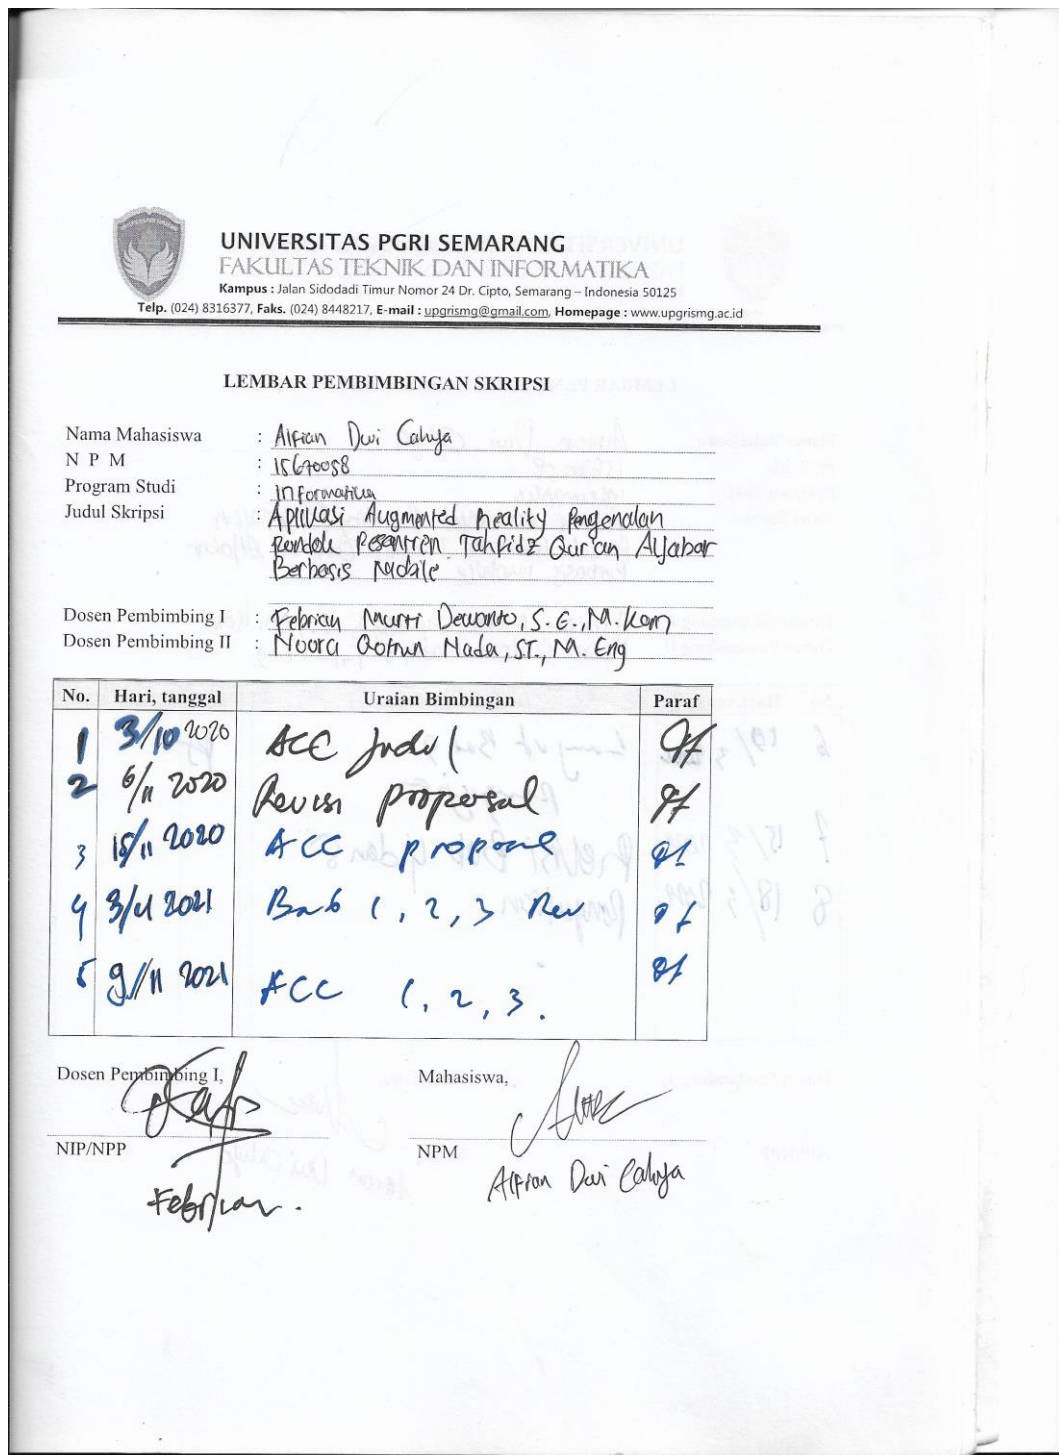 UNIVERSITAS PGRI SEMARANG
FAKULTAS TEKNIK DAN INFORMATIKA
Kampus : Jalan Sidodadi Timur Nomor 24 Dr. Cipto, Semarang – Indonesia 50125
Telp. (024) 8316377, Faks. (024) 8448217, E-mail : upgrismg@gmail.com, Homepage : www.upgrismg.ac.id
LEMBAR PEMBIMBINGAN SKRIPSI
Nama Mahasiswa : Alfian Dwi Cahya
N P M : 15670058
Program Studi : Informatika
Judul Skripsi : Aplikasi Augmented Reality Pengenalan
Pondok Pesantren Tahfidz Qur'an Aljabar
Berbasis Mobile
Dosen Pembimbing I : Febrian Murti Dewanto, S.E., M.Kom
Dosen Pembimbing II : Noora Qotrun Nada, ST., M. Eng
No. Hari, tanggal Uraian Bimbingan Paraf
1 3/10 2020 ACC Judul
2 6/11 2020 Revisi proposal
3 15/11 2020 ACC propos
4 2021 Bab 1, 2, 3 Rev
5 9/11 2021 ACC 1, 2, 3.
Dosen Pembimbing I, Mahasiswa,
NIP/NPP NPM
Febrian. Alfian Dwi Cahya